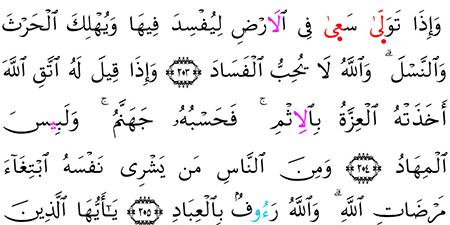 وَإِذَا تَوَلّ۪ىٰ سَع۪ىٰ فِى اَ۬لَارْضِ لِيُفْسِدَ فِيهَا وَيُهْلِكَ اَ۬لْحَرْثَ
وَالنَّسْلَۖ وَاللَّهُ لَا يُحِبُّ الْفَسَادَ ٢٠٣ وَإِذَا قِيلَ لَهُ اُتَّقِ اللَّهَ
أَخَذَتْهُ الْعِزَّةُ بِالِاثْمِۚ فَحَسْبُهُۥ جَهَنَّمُۚ وَلَبِيسَ
الْمِهَادُ ٢٠٤ وَمِنَ النَّاسِ مَن يَشْرِى نَفْسَهُ ابْتِغَآءَ
مَرْضَاتِ اللَّهِۖ وَاللَّهُ رَءُوفٌۢ بِالْعِبَادِ ٢٠٥ يَٰٓأَيُّهَا الَّذِينَ